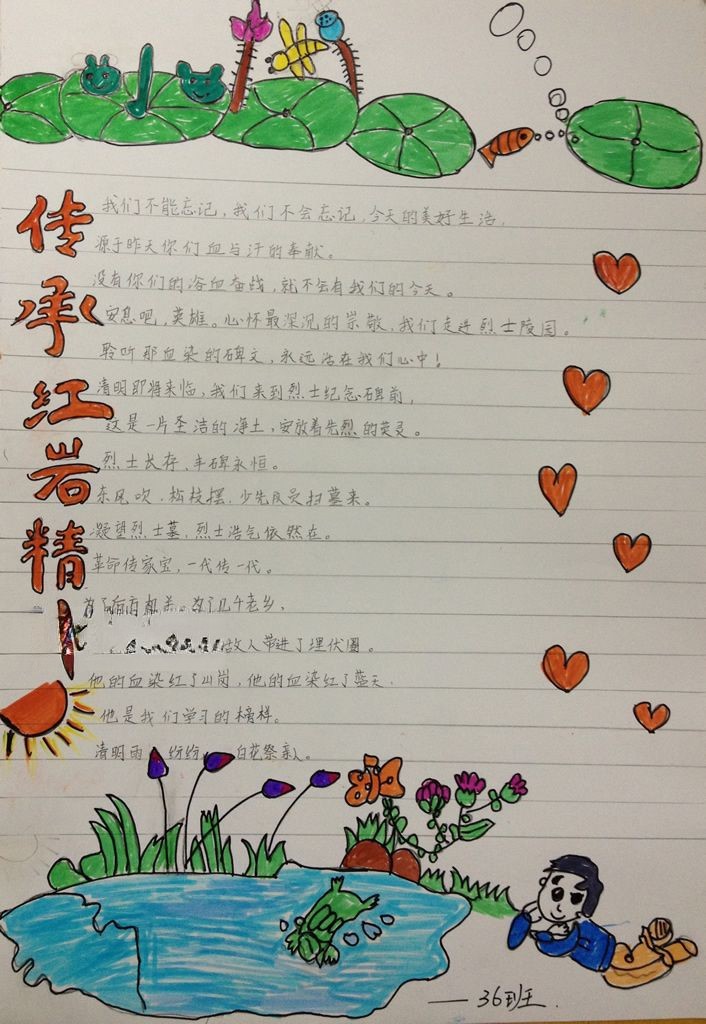 传承红岩精
我们不能忘记，我们不会忘记，今天的美好生活，
源于昨天你们血与汗的奉献。
没有你们的浴血奋战，就不会有我们的今天。
安息吧，英雄。心怀最深沉的崇敬，我们走进烈士陵园。
聆听那血染的碑文，永远活在我们心中！
清明即将来临，我们来到烈士纪念碑前，
这是一片圣洁的净土，安放着先烈的英灵。
烈士长存、丰碑永恒。
东风吹，松枝摆，少先队员扫墓来。
凝望烈士墓，烈士浩气依然在。
革命传家宝，一代传一代。
为了 机关。为了几千老乡，
敌人带进了埋伏圈。
他的血染红了山岗，他的血染红了蓝天，
他是我们学习的榜样。
清明雨 纷纷 白花祭亲人。
——36班.